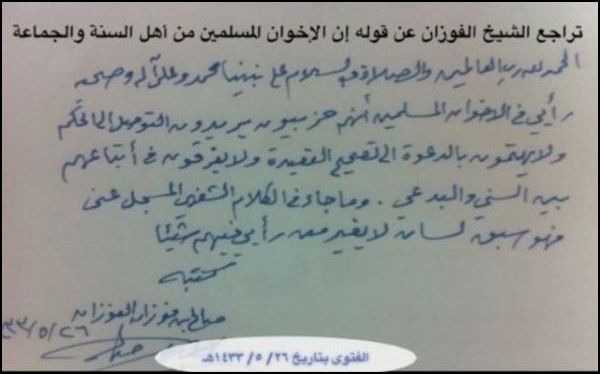 تراجع الشيخ الفوزان عن قوله إن الإخوان المسلمين من أهل السنة والجماعة
الحمد لله رب العالمين والصلاة والسلام على نبينا محمد وعلى آله وصحبه
رأيي في الاخوان المسلمين أنهم حزبيون يريدون التوصل الى الحكم
ولا يهتمون بالدعوة الى تصحيح العقيدة ولا يفرقون في أتباعهم
بين السني والبدعي . وما جاء في الكلام الشفهي المسجل عني
فهو سبق لسان لا يغير من رأيي فيهم شيئا
كتبه
صالح بن فوزان الفوزان
٢٦/٥/٢٣
الفتوى بتاريخ ٢٦/ ٥/ ١٤٣٣هـ